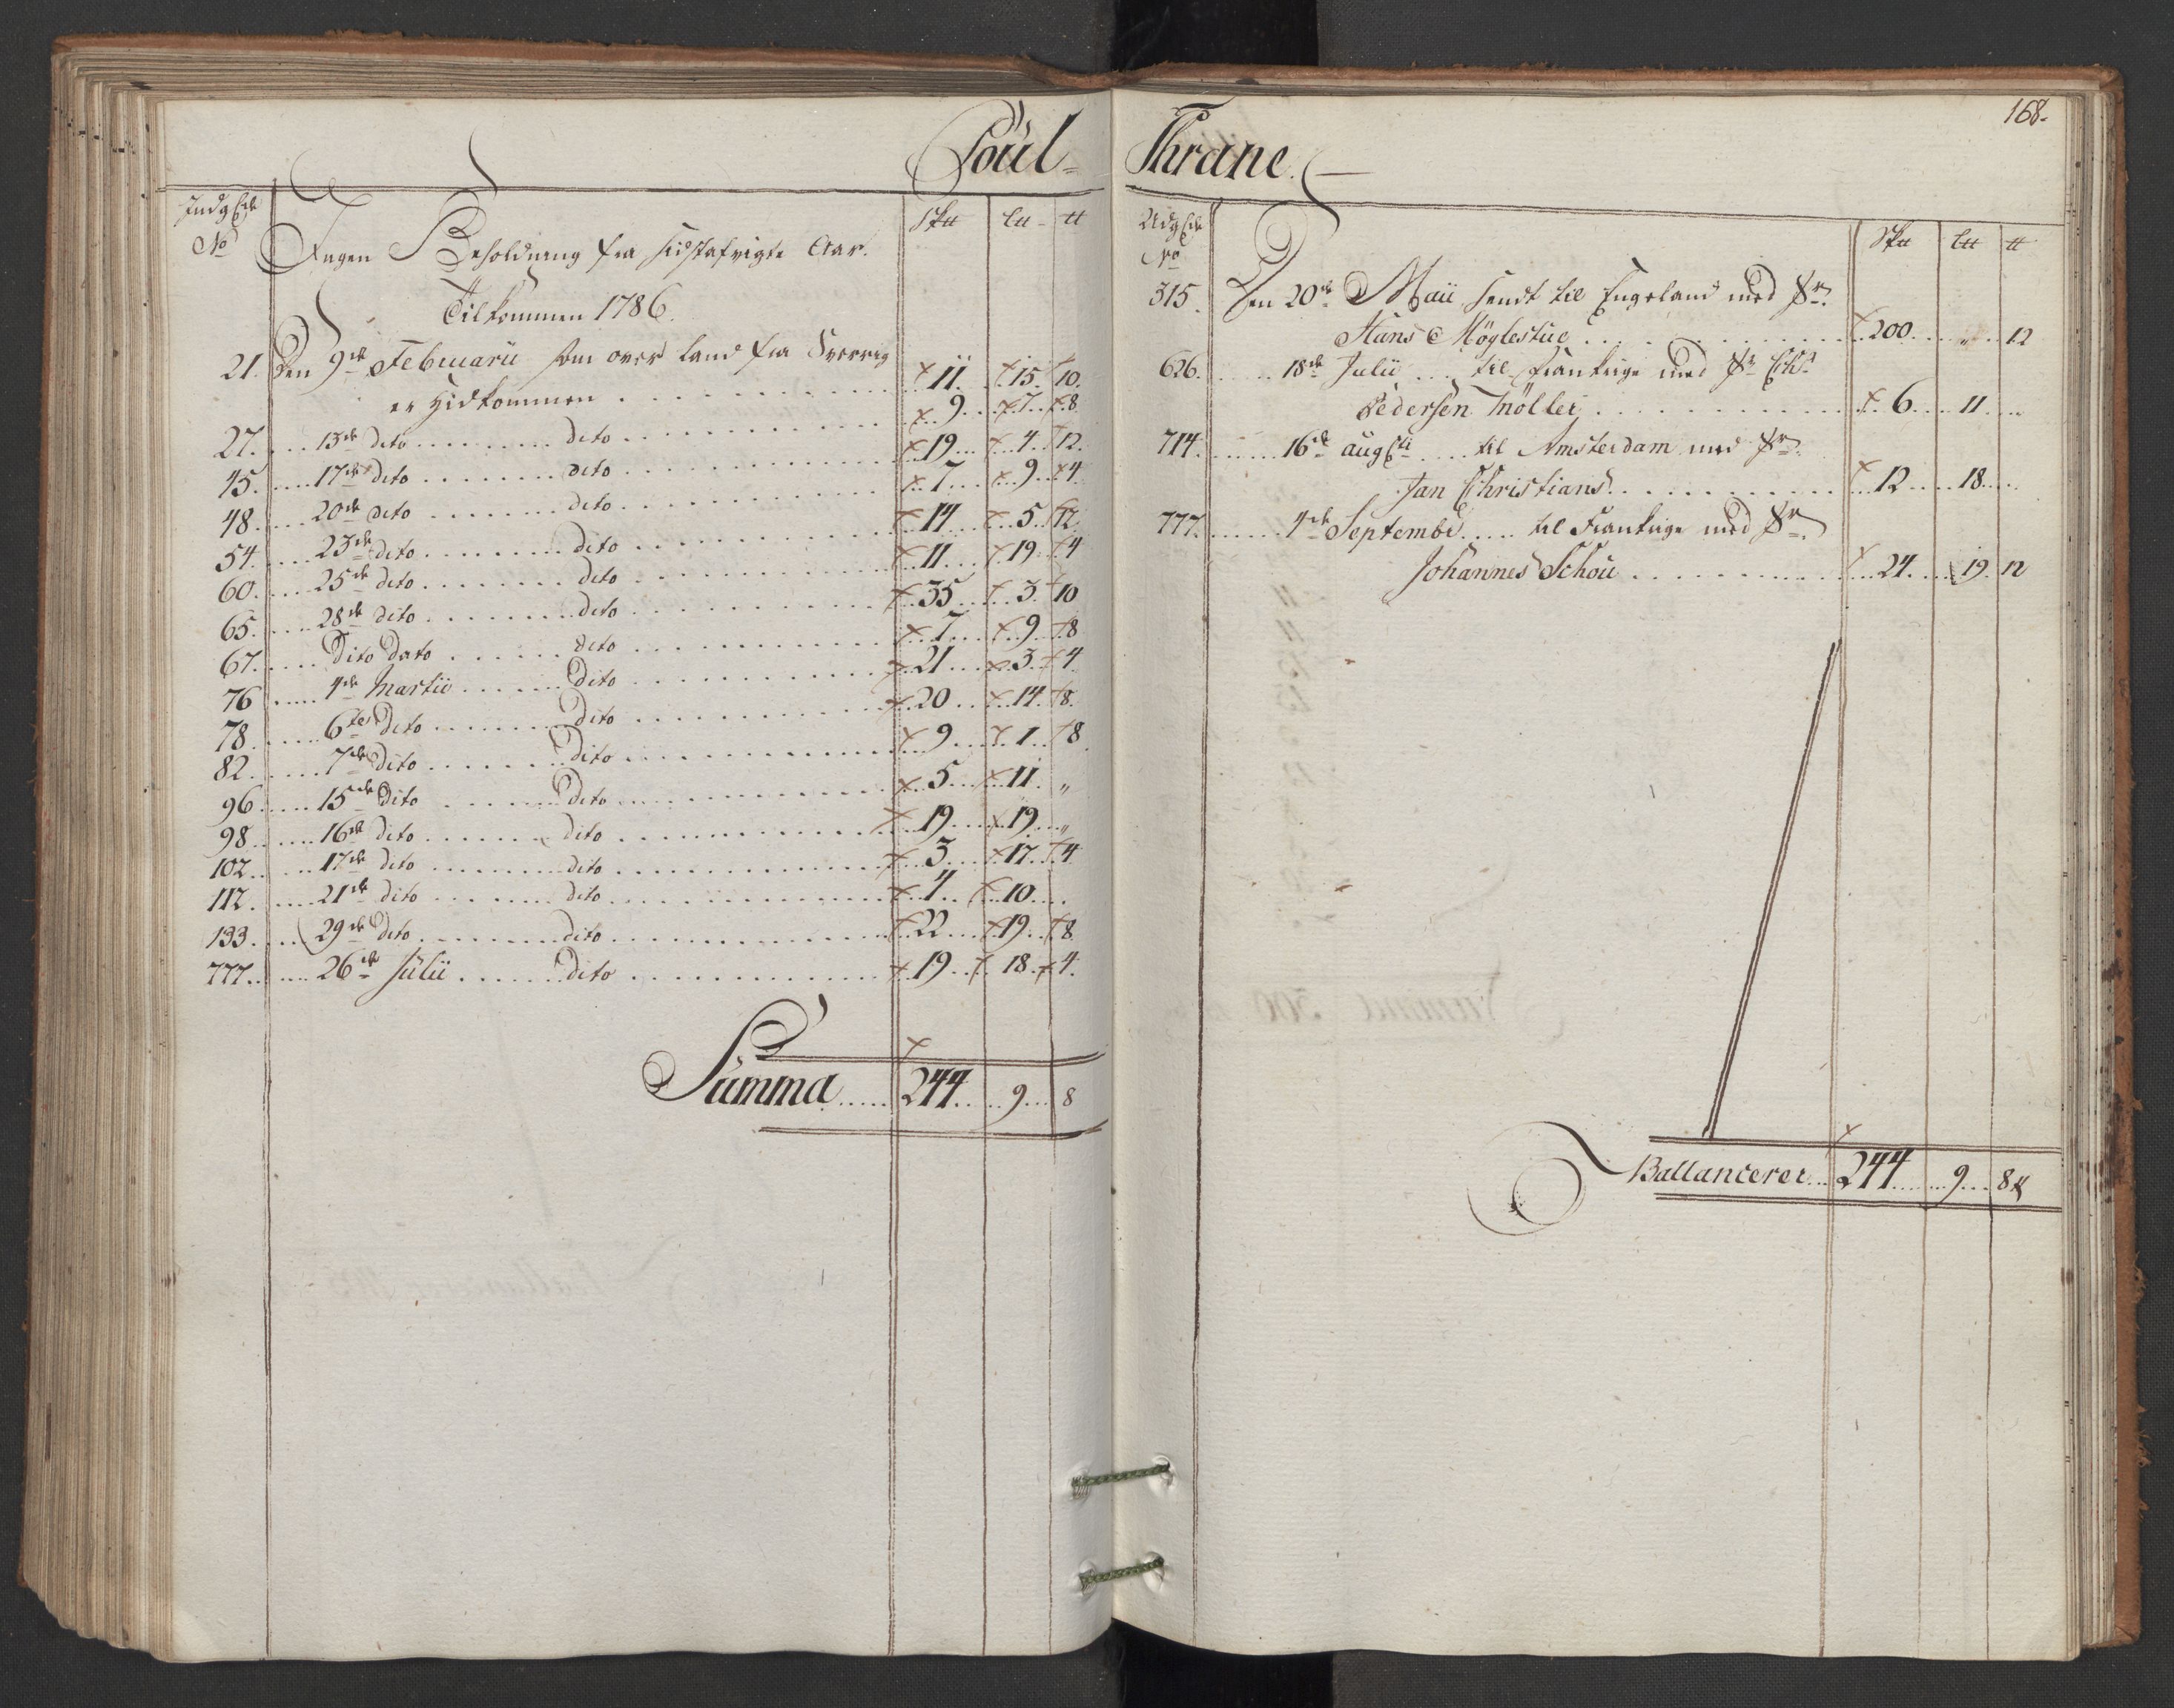 168.
Poul Thrane.
Indg Sedl
No
Sk℔ L℔ ℔
Ingen Beholdning fra sidstafvigte Aar.
Tilkommen 1786.
21. Den 9de Februarii som over land fra Sverrig
er hidkommen 11. 15. 10.
27. 13de dito dito 9 7 8
45. 17de dito dito 19 4 12.
48. 20de dito dito 7 9 4
54. 23de dito dito 14 5 12
60. 25de dito dito 11 19 4
65. 28de dito dito 35 3 10
67. Dito Dato dito 7 9 8
76 4de Martii dito 21 3 4
78. 6te dito dito 20 14 8.
82. 7de dito dito 9 1 8
96. 15de dito dito 5 11 "
98. 16de dito dito 19 19 "
102. 17de dito dito 3 17 4
112. 21de dito dito 4 10
133. 29de dito dito 22 19 8
777. 26de Julii dito 19 18 4.
Summa 244 9 8
Udg Sedl
No
Sk℔ L℔ ℔
315. Den 20de Maii sendt til Engeland med Sr
Hans Höglestue 200 " 12
626. 18de Julii til Frankrige med Sr Chr
Pedersen Möller 6 11 "
714. 16de augsti til Amsterdam med Sr
Jan Christians 12 18
777. 4de Septembr til Frankrige med Sr
Johannes Schou 24 19 12
Ballancerer 244 9 8